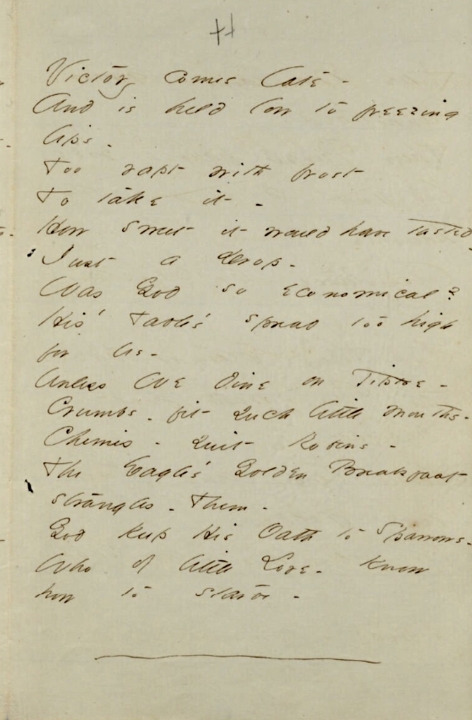 Victory comes late -
And is held low to freezing
lips -
Too rapt with frost
To take it -
How sweet it would have tasted -
Just a Drop -
Was God so economical?
His Table's spread too high
for Us -
Unless We dine on Tiptoe -
Crumbs - fit such little mouths -
Cherries - suit Robins -
The Eagle's Golden Breakfast
strangles - Them -
God keep His Oath to Sparrows -
Who of little Love - know
how to starve -